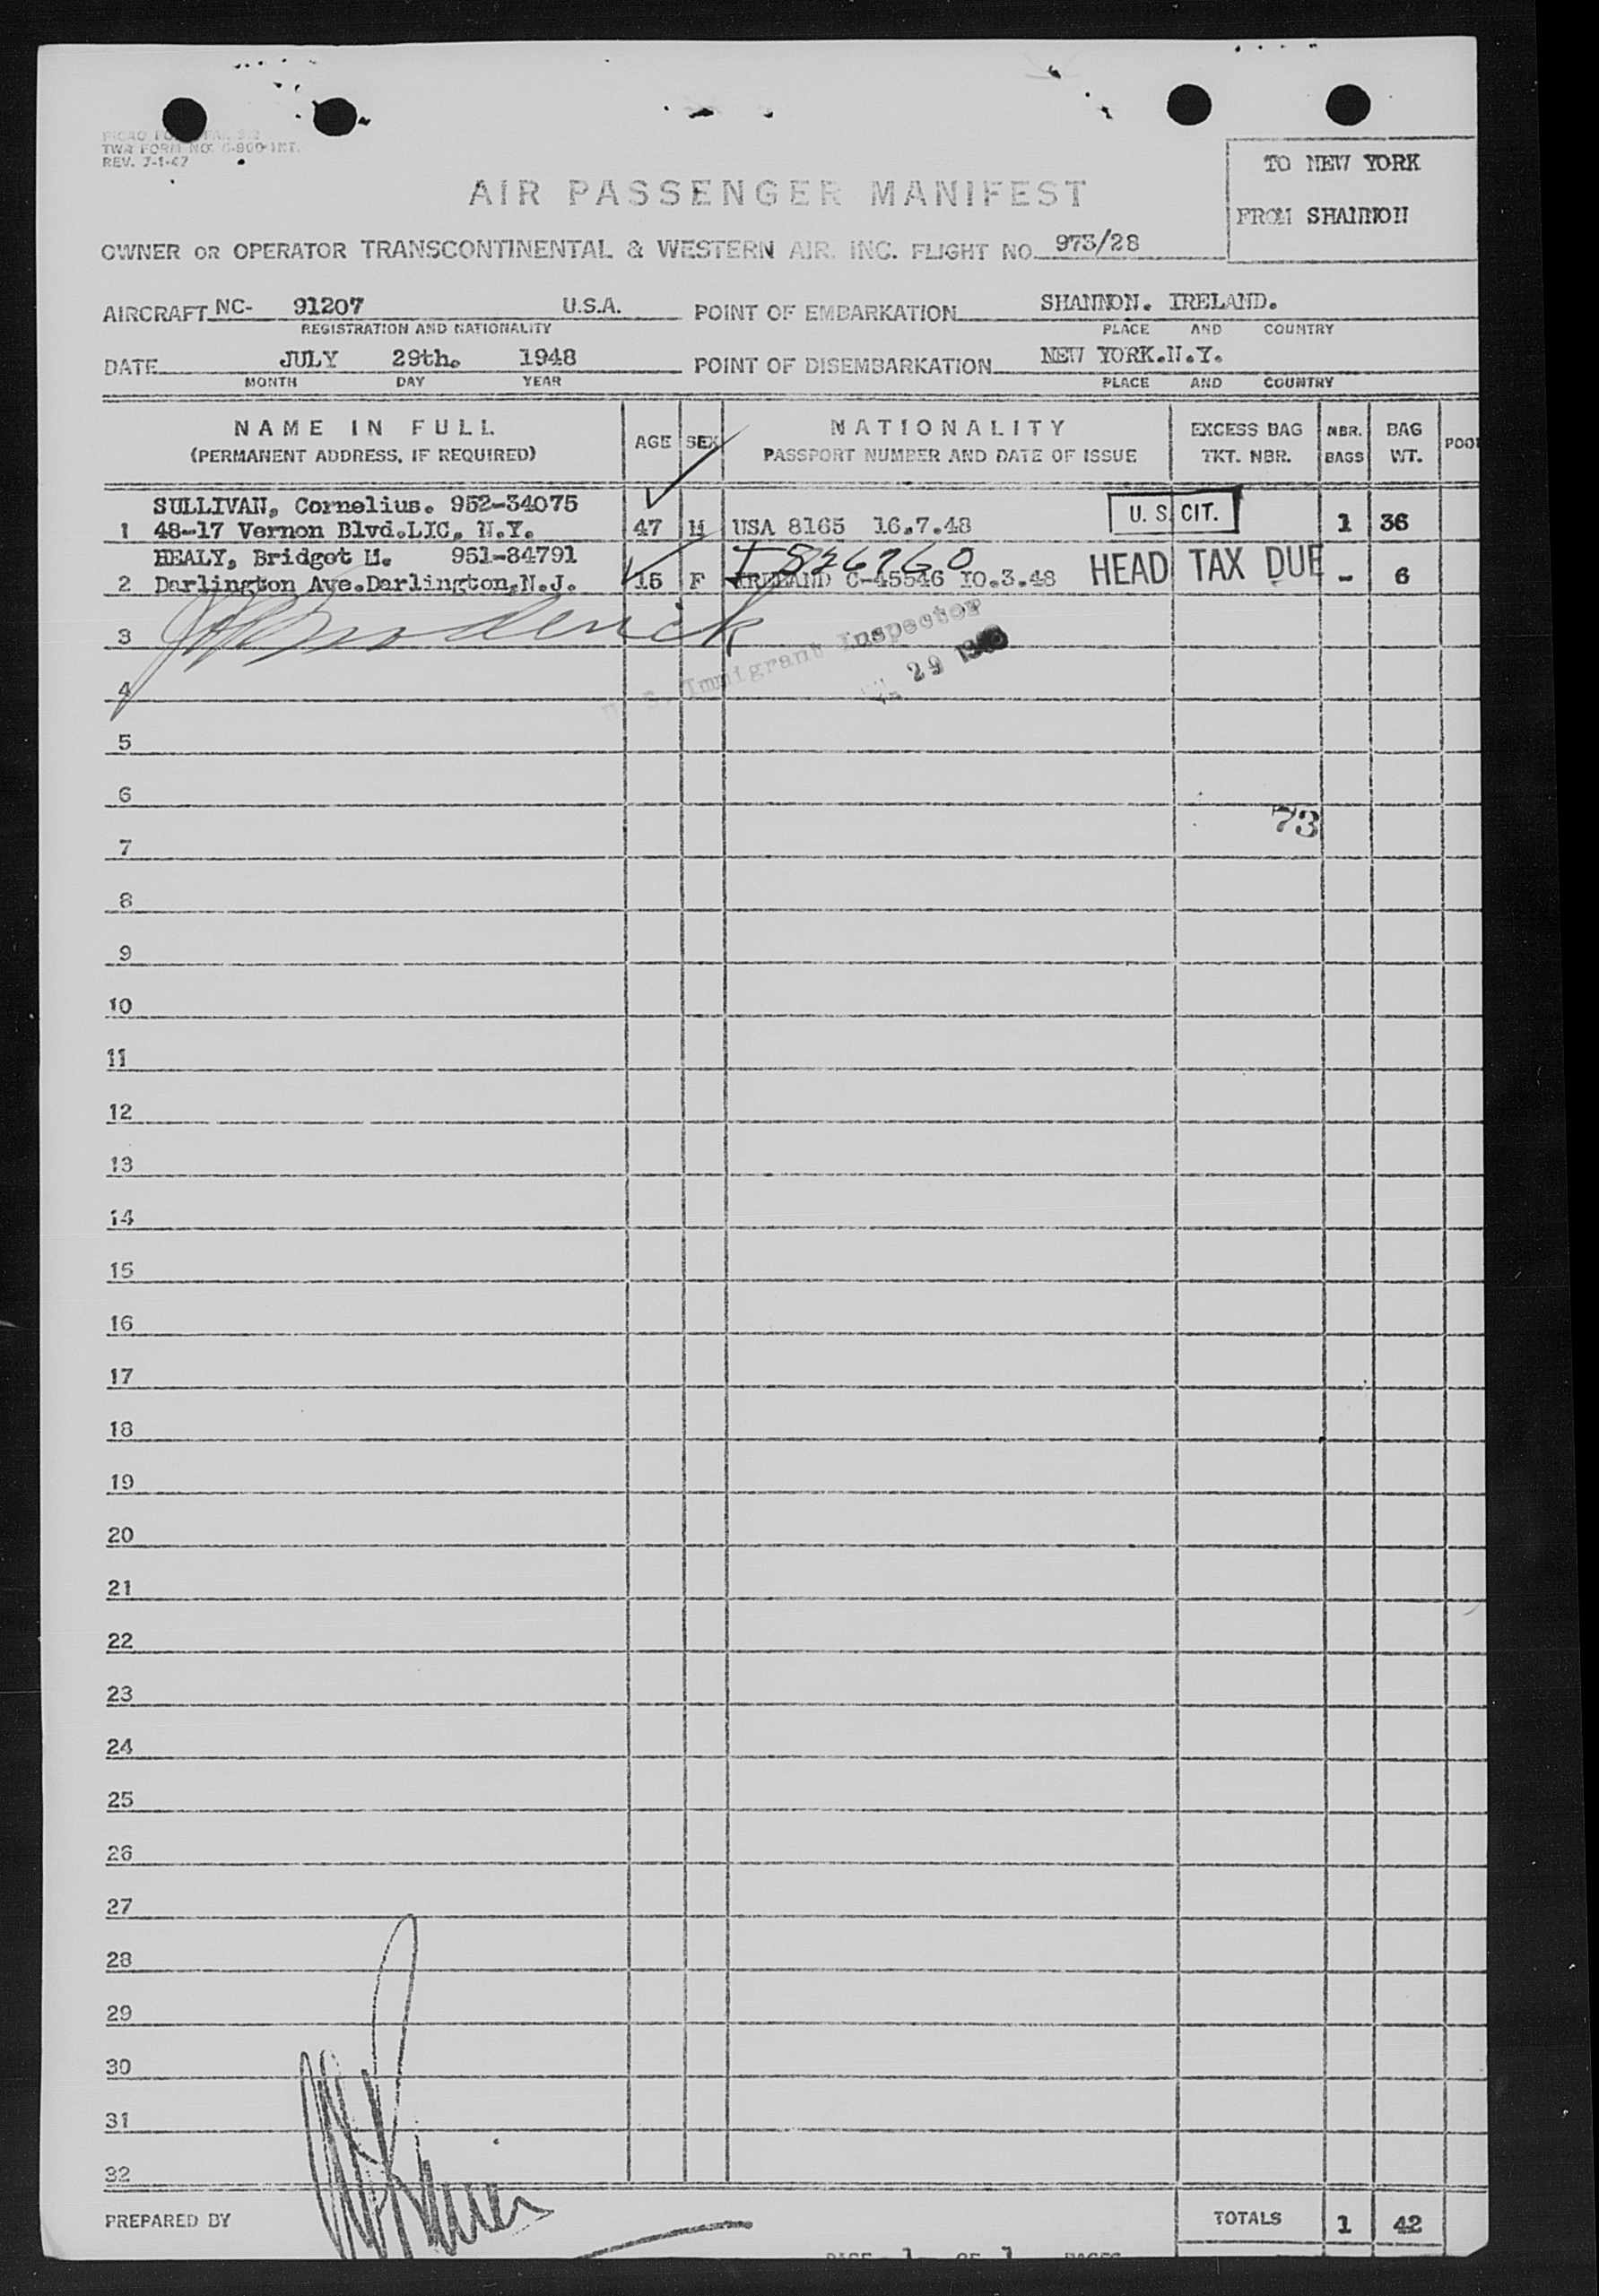 TWA FORM NO.
REV. 7-1-47
TO NEW YORK
FROM SHANNON
AIR PASSENGER MANIFEST
OWNER OR OPERATOR TRANSCONTINENTAL & WESTERN AIR, INC. FLIGHT NO. 973/28
AIRCRAFT NC- 91207 U.S.A. POINT OF EMBARKATION SHANNON. IRELAND.
REGISTRATION AND NATIONALITY PLACE AND COUNTRY
DATE JULY 29th. 1948 POINT OF DISEMBARKATION NEW YORK.N.Y.
MONTH DAY YEAR PLACE AND COUNTRY
NAME IN FULL AGE SEX NATIONALITY EXCESS BAG NBR. BAG
(PERMANENT ADDRESS, IF REQUIRED) PASSPORT NUMBER AND DATE OF ISSUE TKT. NBR. BAGS WT.
SULLIVAN, Cornelius. 952-34075
1 48-17 Vernon Blvd.LIC, N.Y. 47 M USA 8165 16.7.48 U.S. CIT. 1 36
HEALY, Bridget M. 951-84791 I 526760
2 Darlington Ave.Darlington,N.J. F IRELAND C-45546 10.3.48 HEAD TAX DUE - 6
3 Broderick
Immigrant Inspector
29 1948
4
5
6
73
7
8
9
10
11
12
13
14
15
16
17
18
19
20
21
22
23
24
25
26
27
28
29
30
31
32
PREPARED BY TOTALS 1 42
PAGE 1 OF 1 PAGES